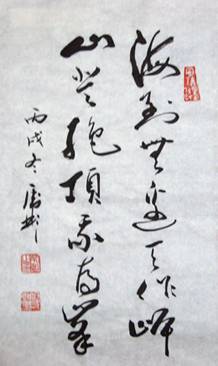 海到無邊天作岸
山登絶頂我為峯
丙戌冬